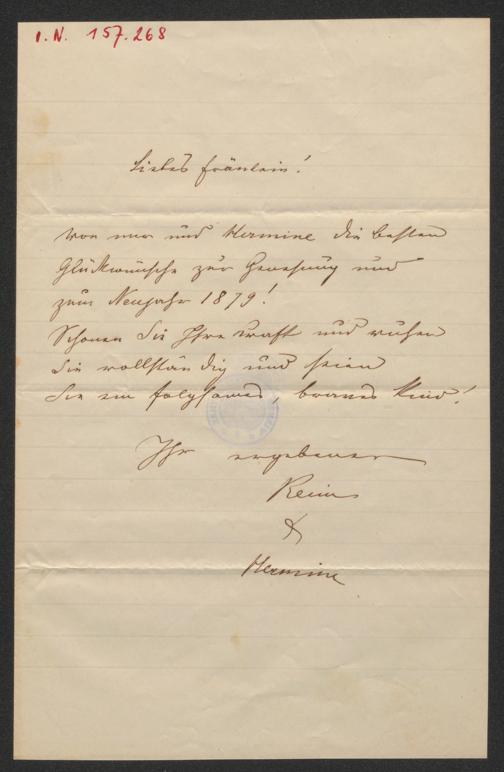 I.N. 157.268
Liebes Fräulein!
Von mir und Hermine die besten
Glückwünsche zur Genesung und
zum Neujahr 1879!
Schonen Sie Ihre Kraft und ruhen
Sie vollständig und seien
Sie ein folgsames, braves Kind!
Ihr ergebener
&
Hermine